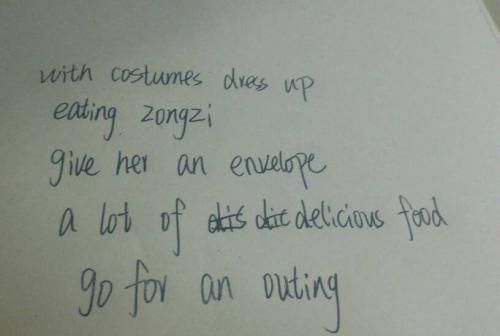 with costumes dress up
eating zongzi
give her an envelope
a lot of delicious food
go for an outing